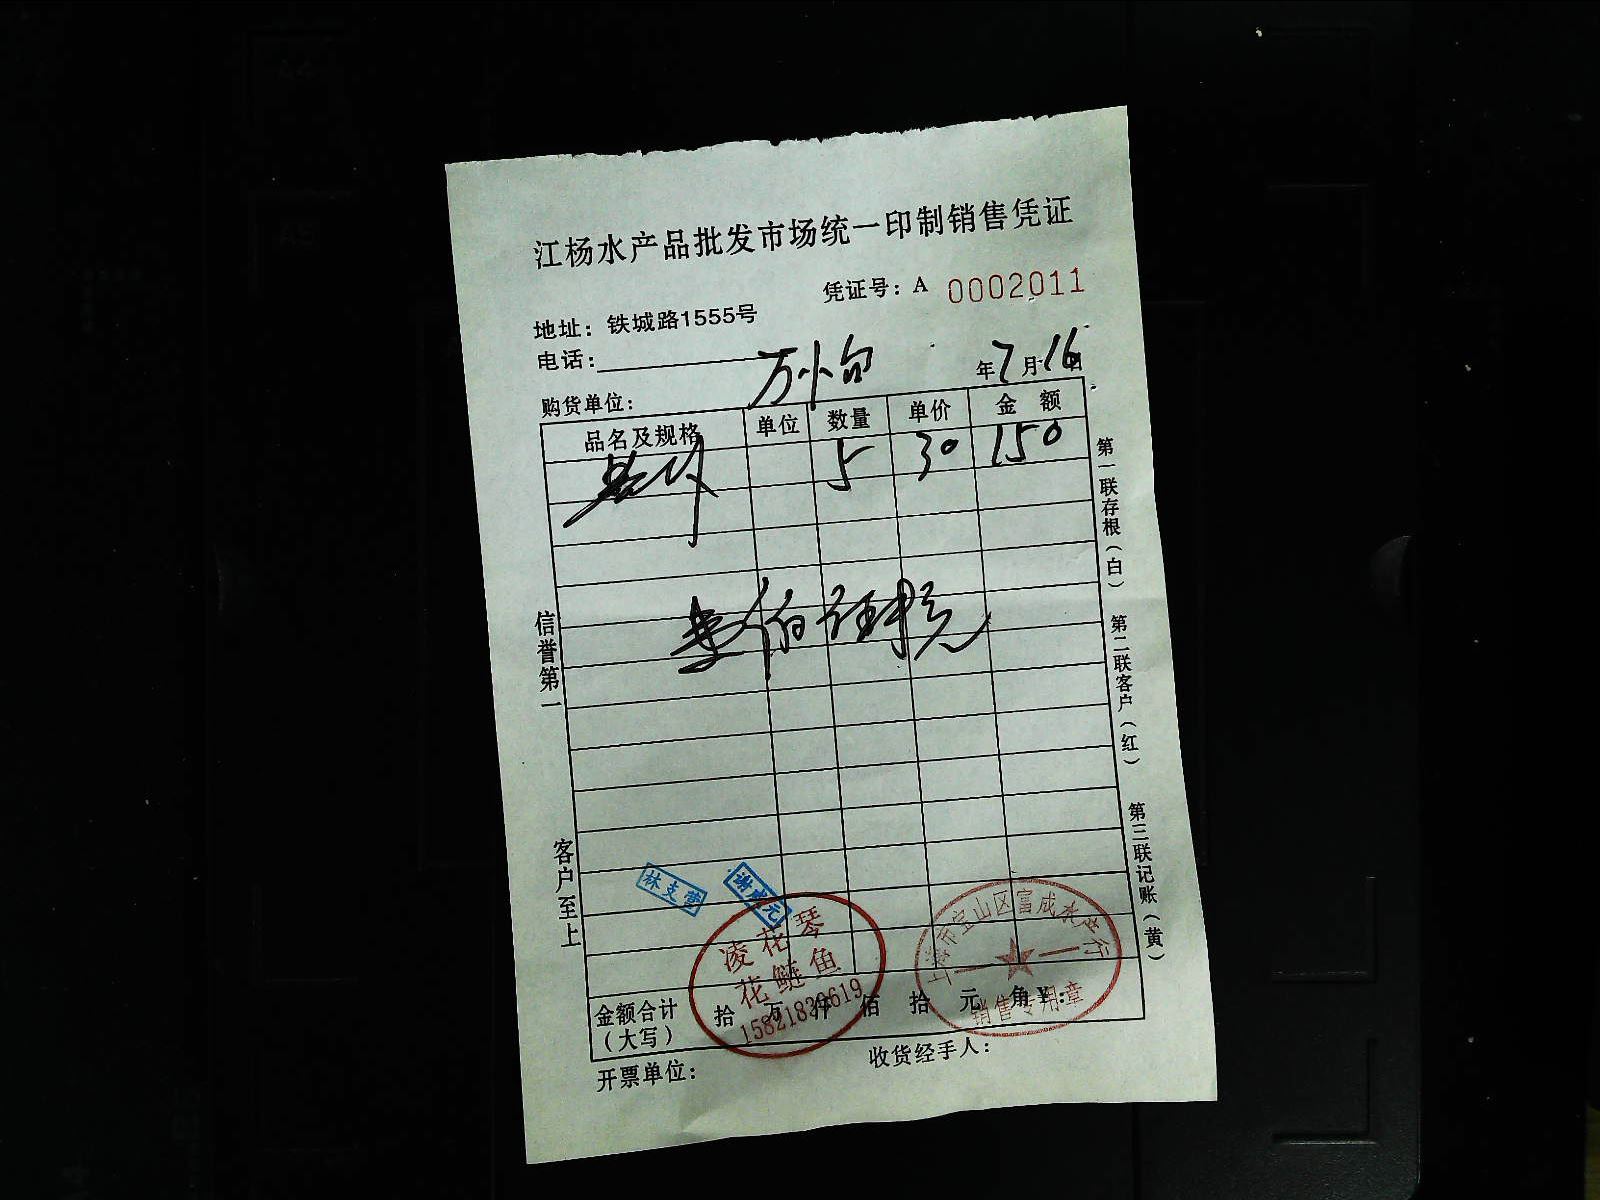 江杨水产品批发市场统一印制销售凭证
凭证号：A 0002011
地址：铁城路1555号
电话：
万小白 年7月16日
购货单位：
品名及规格 单位 数量 单价 金额
5 30 150
第一联存根（白） 第二联客户（红） 第三联记账（黄）
信誉第一 客户至上
林支营
谢成元
凌花琴
花鲢鱼
15821839619
上海市宝山区富成水产行
销售专用章
金额合计（大写） 拾 万 仟 佰 拾 元 角 ¥：
开票单位： 收货经手人：